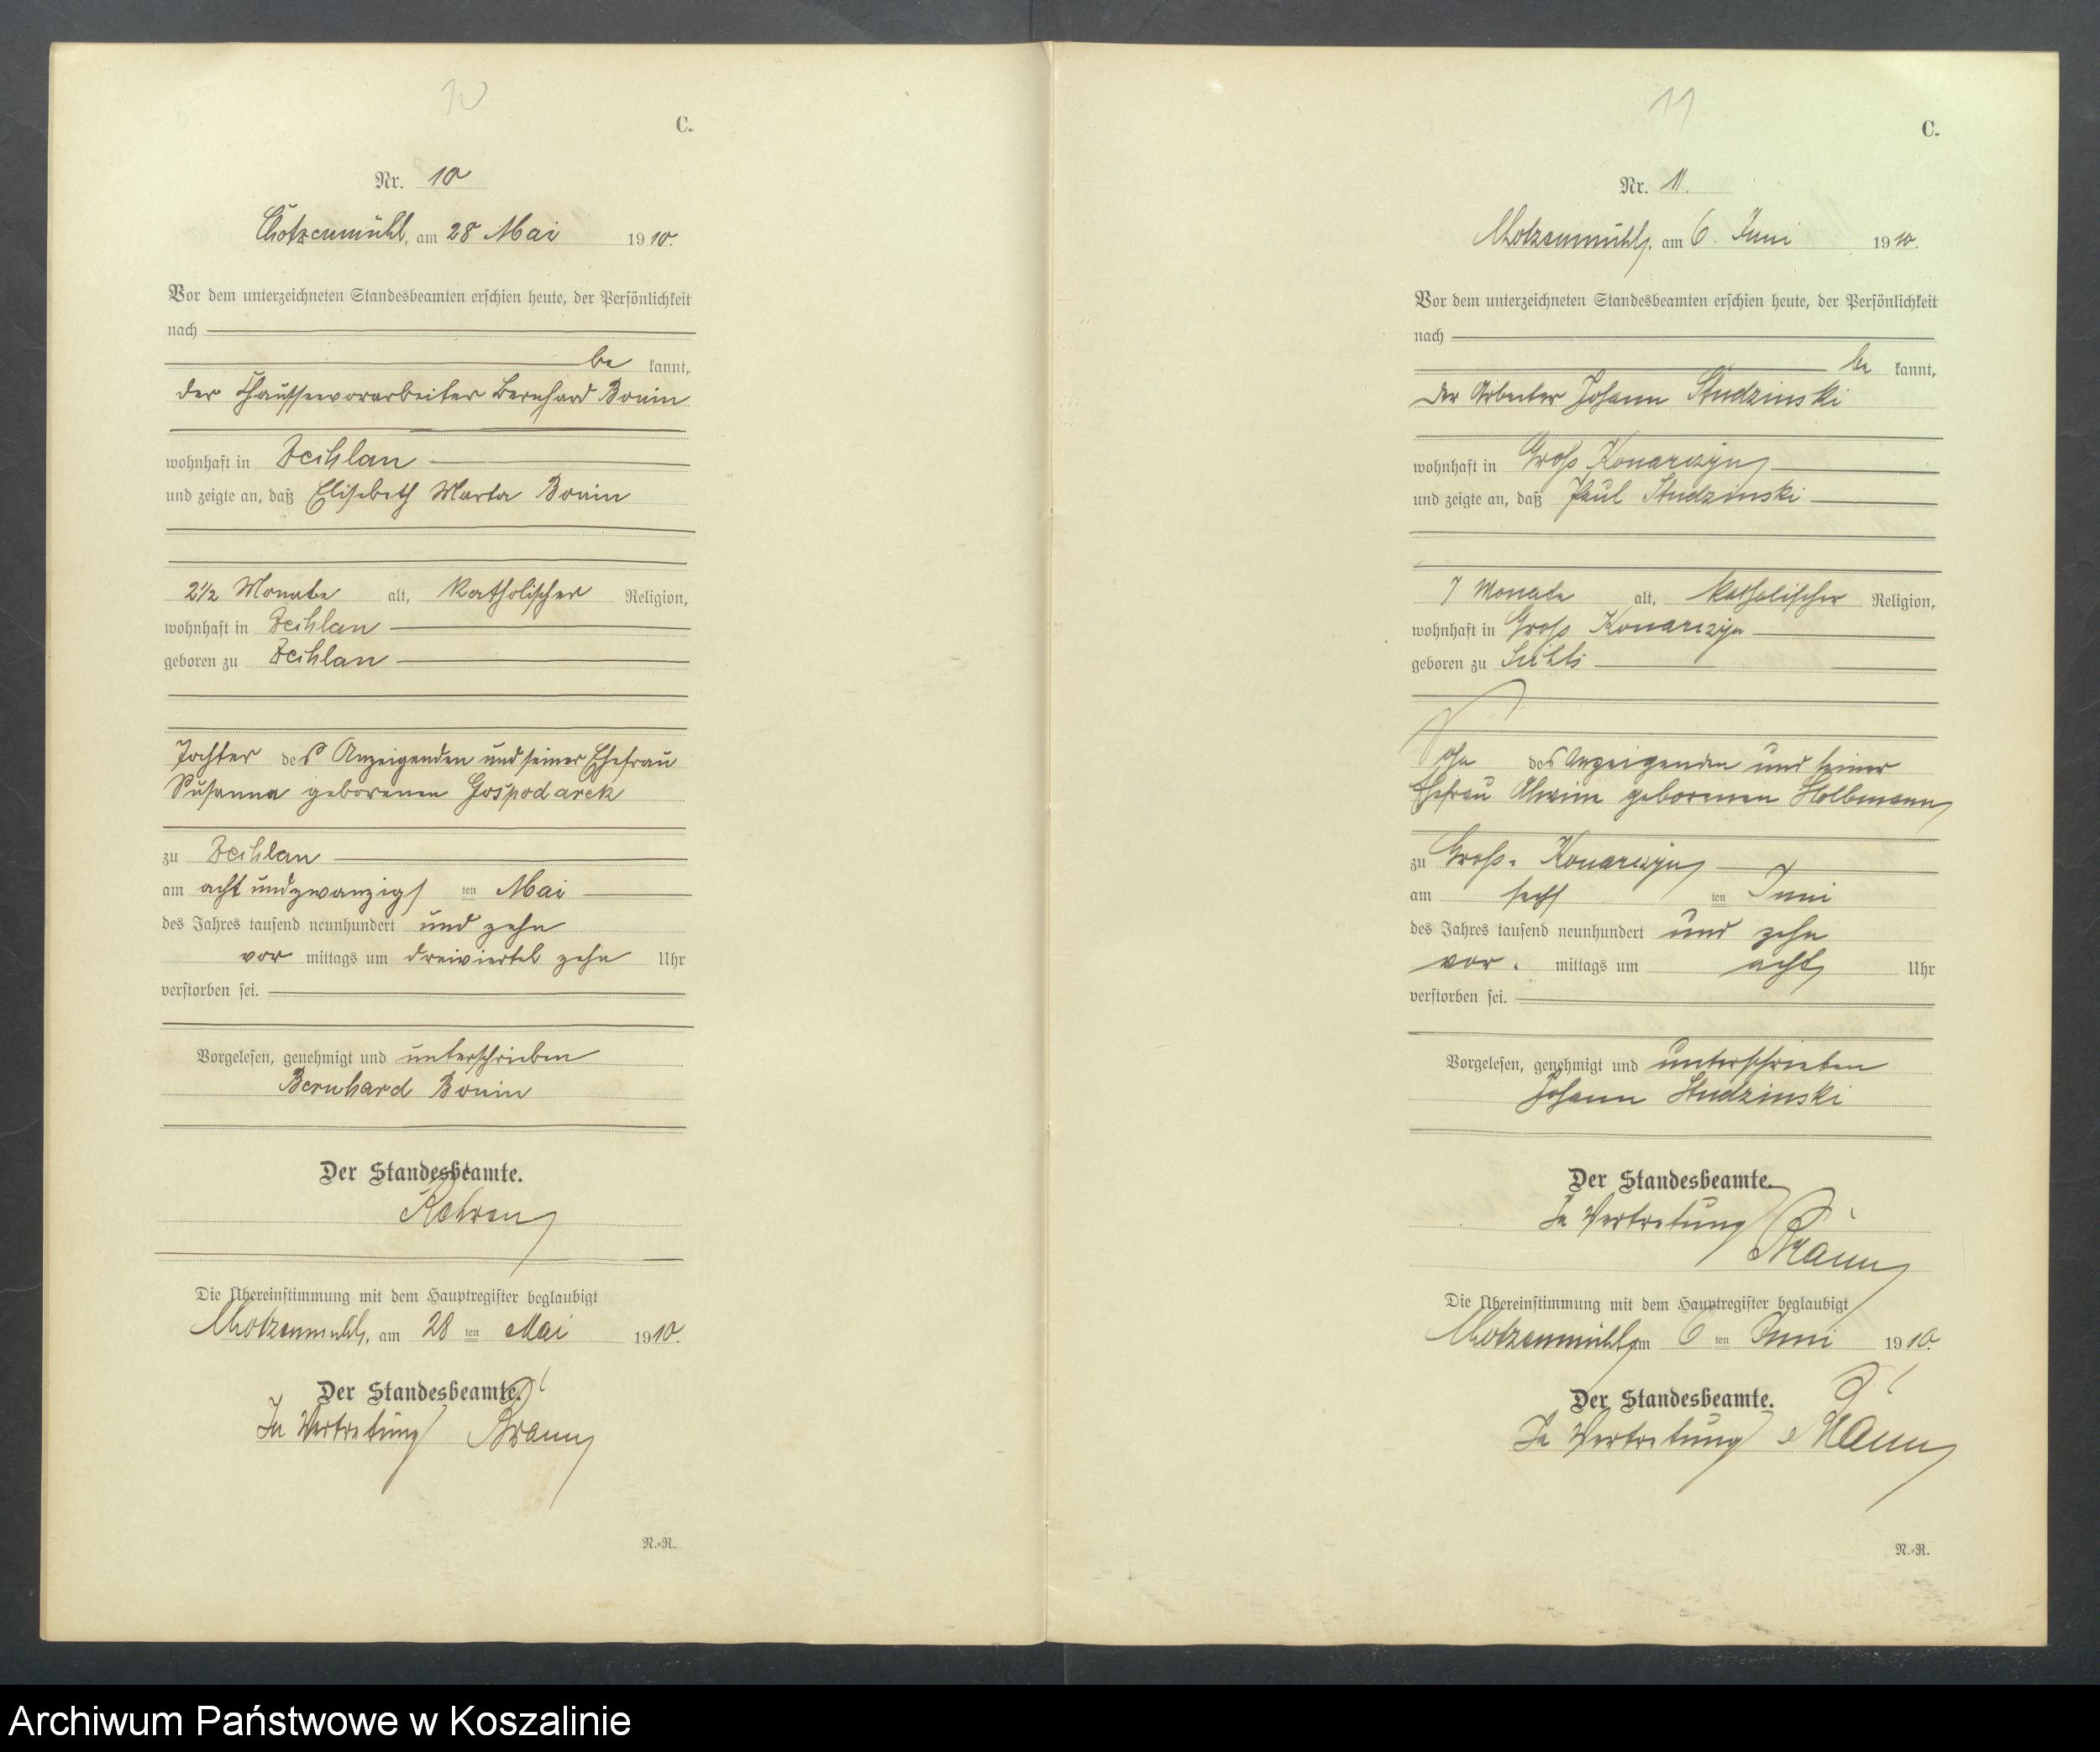 10
C.
Nr. 10
Chotzenmühl, am 28 Mai 1910.
Vor dem unterzeichneten Standesbeamten erschien heute, der Persönlichkeit
nach
be kannt,
der Chausseevorarbeiter Bernhard Bonin
wohnhaft in Zechlau
und zeigte an, daß Elisabeth Marta Bonin
2 1/2 Monate alt, katholischer Religion,
wohnhaft in Zechlau
geboren zu Zechlau
Tochter des Anzeigenden und seiner Ehefrau
Susanna geborenen Gospodarek
zu Zechlau
am acht und zwanzigsten Mai
des Jahres tausend neunhundert und zehn
vor mittags um dreiviertel zehn Uhr
verstorben sei.
Vorgelesen, genehmigt und unterschrieben
Bernhard Bonin
Der Standesbeamte.
Die Übereinstimmung mit dem Hauptregister beglaubigt
Chotzenmühl, am 28 ten Mai 1910.
Der Standesbeamte.
In Vertretung
N.=R.
11
C.
Nr. 11.
Chotzenmühl, am 6. Juni 1910.
Vor dem unterzeichneten Standesbeamten erschien heute, der Persönlichkeit
nach
be kannt,
der Arbeiter Johann Studzinski
wohnhaft in Groß Konarczyn
und zeigte an, daß Paul Studzinski
7 Monate alt, katholischer Religion,
wohnhaft in Groß Konarczyn
geboren zu
Sohn des Anzeigenden und seiner
Ehefrau Alwine geborenen
zu Groß-Konarczyn
am sechsten Juni
des Jahres tausend neunhundert und zehn
vor mittags um acht Uhr
verstorben sei.
Vorgelesen, genehmigt und unterschrieben
Johann Studzinski
Der Standesbeamte.
In Vertretung
Die Übereinstimmung mit dem Hauptregister beglaubigt
Chotzenmühl, am 6 ten Juni 1910.
Der Standesbeamte.
In Vertretung
N.=R.
Archiwum Państwowe w Koszalinie